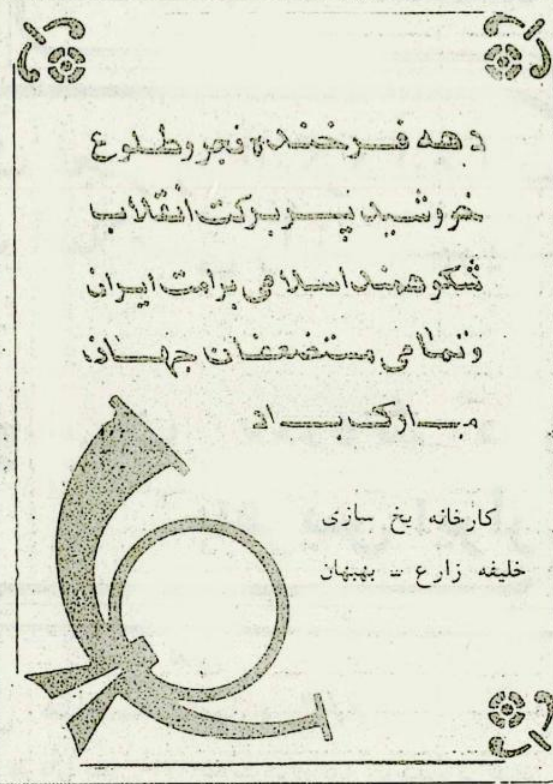 دهه فرخنده فجر و طلوع
خورشید پر برکت انقلاب
شکوهمند اسلامی بر امت ایران
و تمامی مستضعفان جهان،
مبارک باد
کارخانه یخ سازی
خلیفه زارع - بهبهان